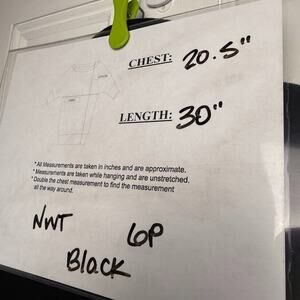 CHEST: 20.5"
LENGTH: 30"
* All Measurements are taken in inches and are approximate.
* Measurements are taken while hanging and are unstretched.
* Double the chest measurement to find the measurement
all the way around.
NWT 6P
Black